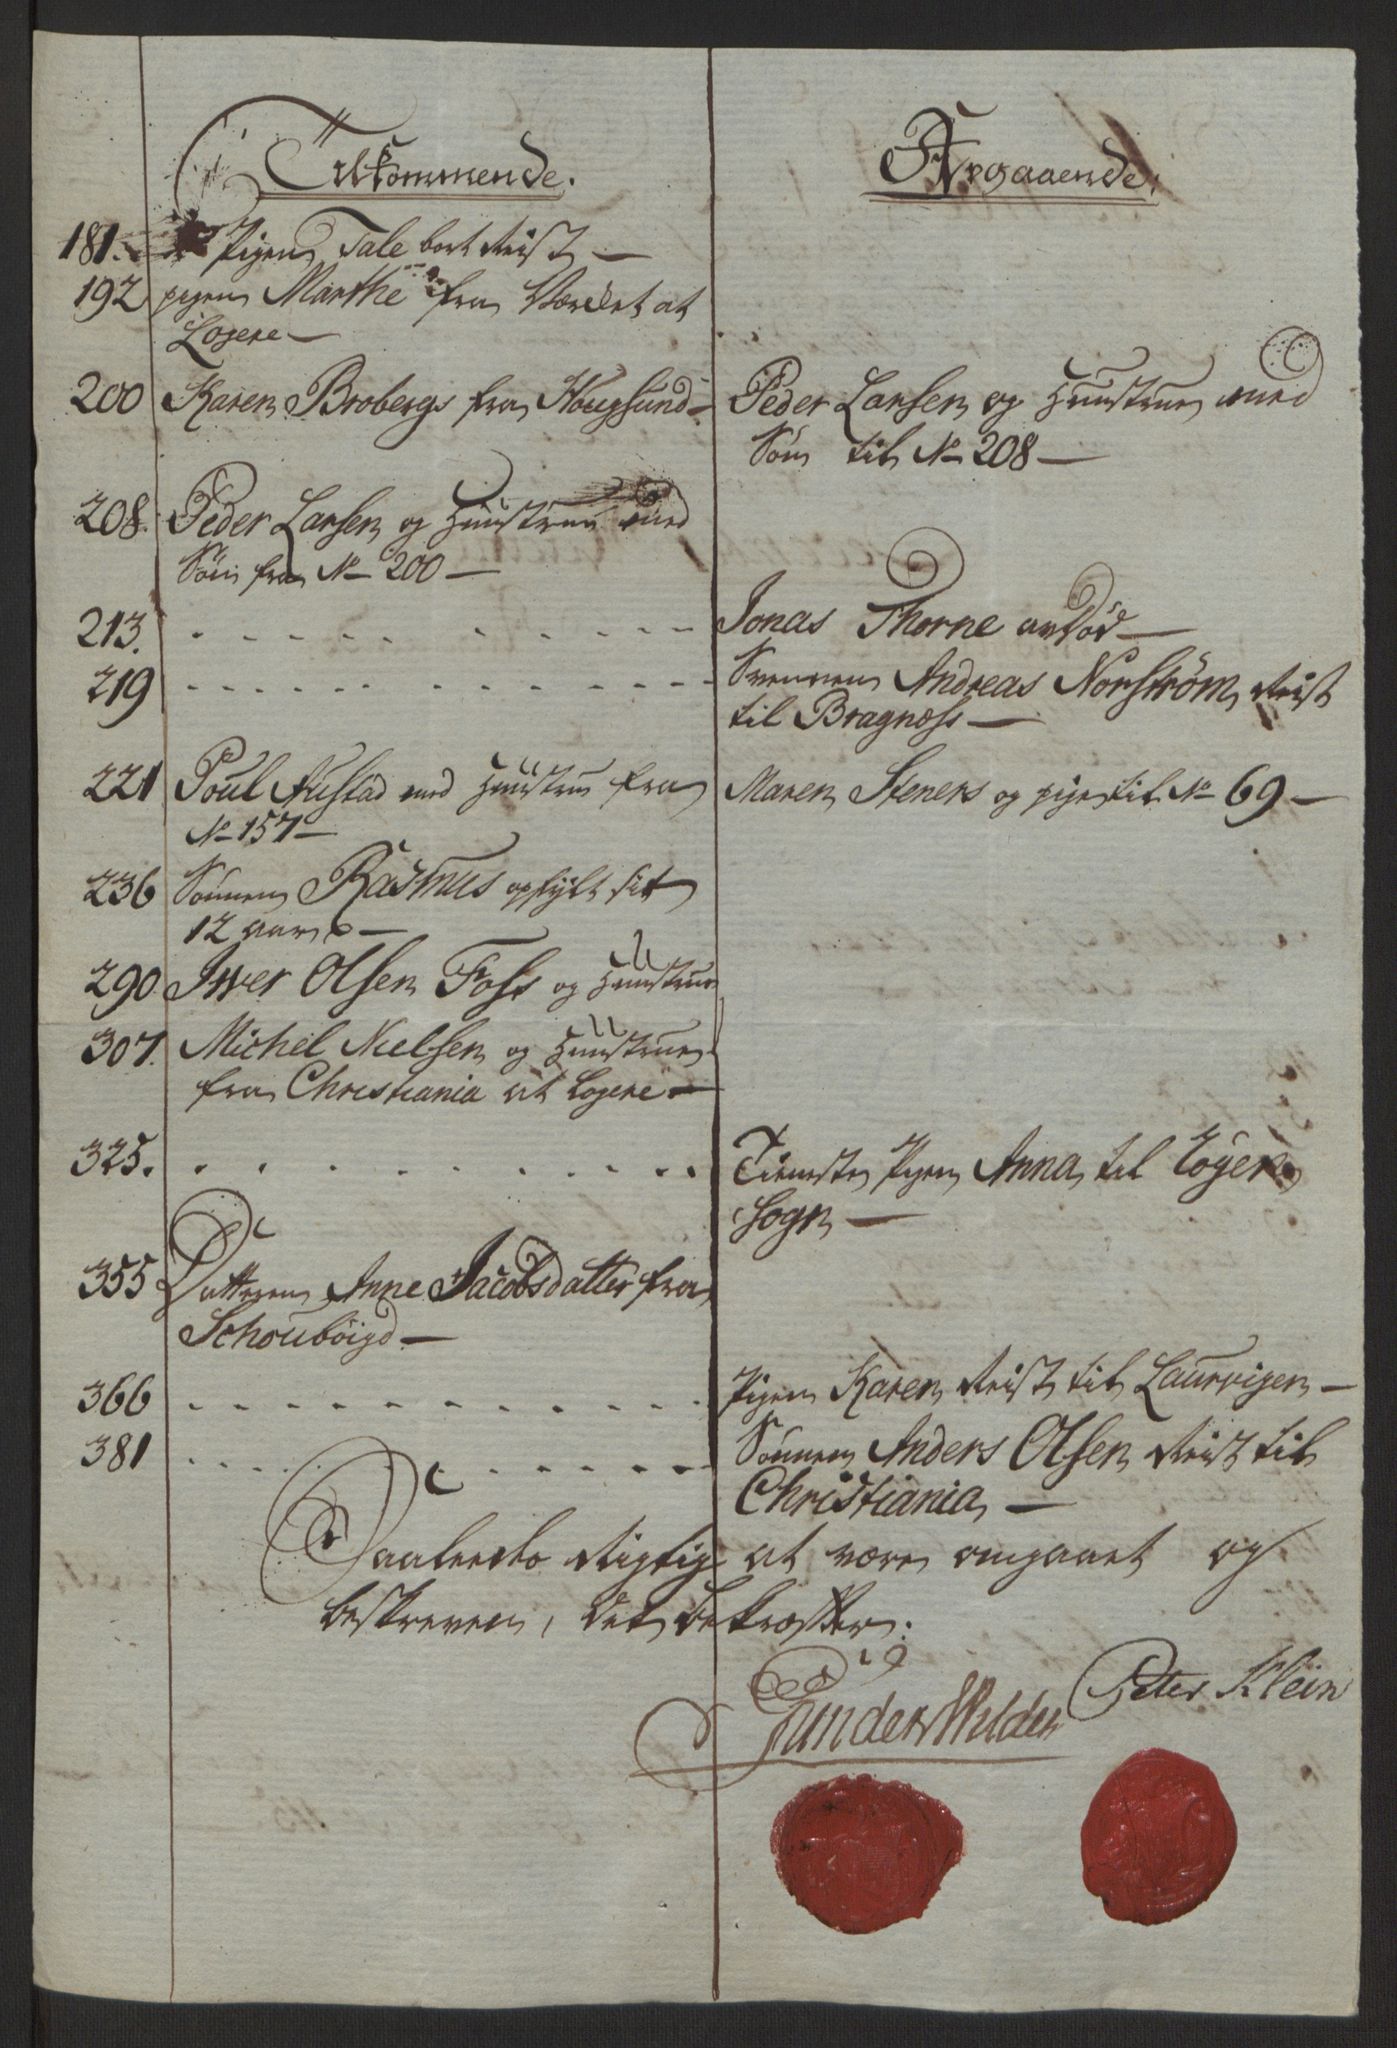 Tilkommende.
Afgaaende.
181. Pigen Tale bort Reist —
192 pigen Marthe fra Værdet at
Logere —
200 Karen Brobergs fra Hougsund —
Peder Larsen og Huustrue med
Søn til No 208 —
208. Peder Larsen og Huustrue med
Søn fra No 200 —
213. Jonas Thorne avdød —
219 Svennen Andreas Norström Reist
til Bragnæss —
221 Poul Austad med Huustru fra
No 157 —
Maren Steners og pige til No 69 —
236 Sønnen Rasmus opfylt sit
12 aar —
290. Iwer Olsen Foss og Huustrue
307. Michel Nielsen og Huustrue
fra Christiania at Logere —
325. Tieneste Pigen Anna til Eger
Sogn —
355 Datteren Anne Jacobsdatter fra
Schoubøigd —
366 Pigen Karen Reist til Laurvigen —
381 Sønnen Anders Olsen Reist til
Christiania —
Saaledes Rigtig at være omgaaet og
beskreven, det bekræfter.
Gunder Wulder
Peter Klein